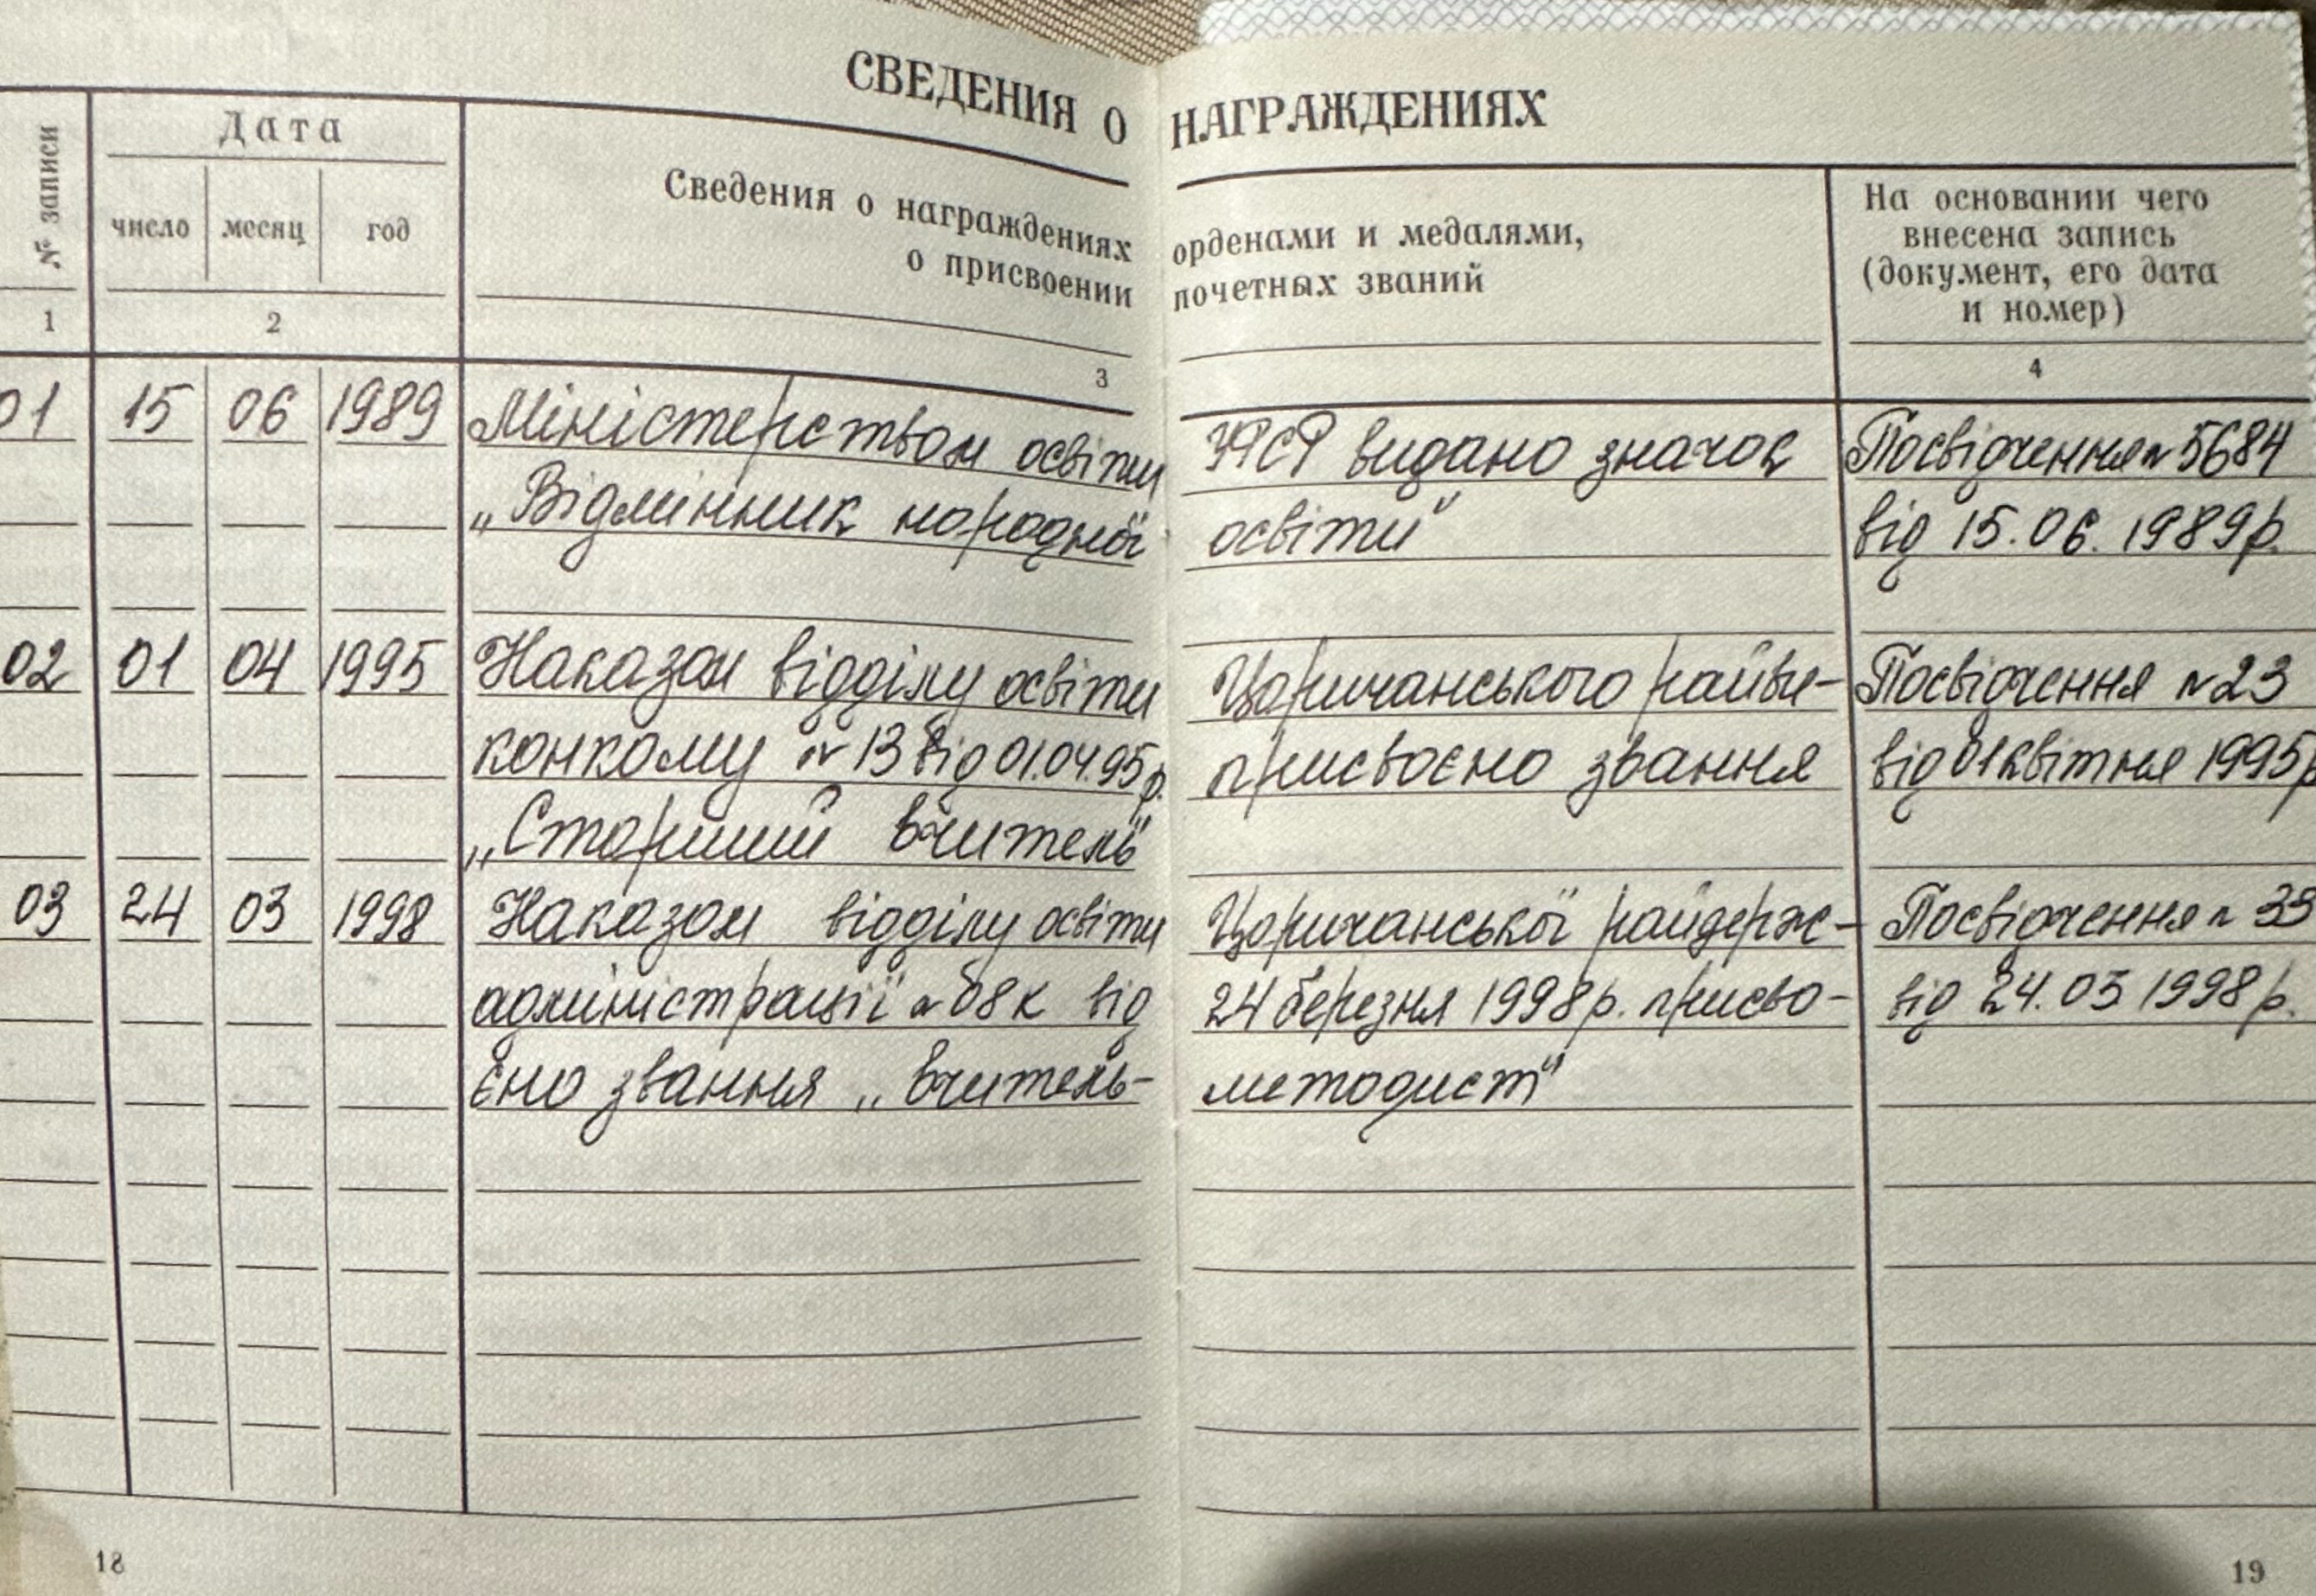 СВЕДЕНИЯ О НАГРАЖДЕНИЯХ
№ записи
Дата
число месяц год
Сведения о награждениях орденами и медалями,
о присвоении почетных званий
На основании чего
внесена запись
(документ, его дата
и номер)
1 2 3 4
01 15 06 1989 Міністерством освіти УРСР видано значок Посвідчення № 5684
„Відмінник народної освіти" від 15.06.1989р.
02 01 04 1995 Наказом відділу освіти Царичанського райви- Посвідчення № 23
конкому № 13 від 01.04.95р. присвоєно звання від 01 квітня 1995р
„Старший вчитель"
03 24 03 1998 Наказом відділу освіти Царичанської райдерж- Посвідчення № 35
адміністрації № 08к від 24 березня 1998р. присво- від 24.03 1998р.
єно звання „вчитель- методист"
18 19